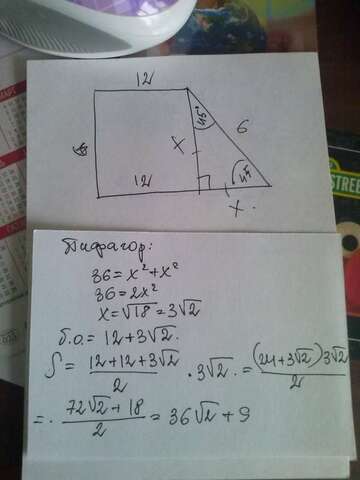 12
45°
6
x
45°
12
x.
STREET
Пифагор:
36 = x² + x²
36 = 2x²
x = √18 = 3√2
б.о. = 12 + 3√2.
S = (12 + 12 + 3√2)/2 · 3√2. = (24 + 3√2)3√2/2
= . (72√2 + 18)/2 = 36√2 + 9